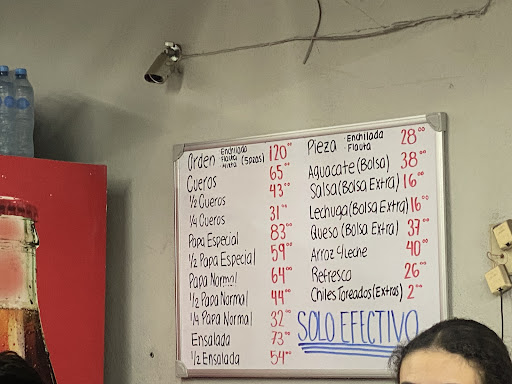 Orden Enchilada Flauta Mixta (5pzas) 120⁰⁰
Cueros 65⁰⁰
½ Cueros 43⁰⁰
¼ Cueros 31⁰⁰
Papa Especial 83⁰⁰
½ Papa Especial 59⁰⁰
Papa Normal 64⁰⁰
½ Papa Normal 44⁰⁰
¼ Papa Normal 32⁰⁰
Ensalada 73⁰⁰
½ Ensalada 54⁰⁰
Pieza - Enchilada - Flauta 28⁰⁰
Aguacate (Bolsa) 38⁰⁰
Salsa (Bolsa Extra) 16⁰⁰
Lechuga (Bolsa Extra) 16⁰⁰
Queso (Bolsa Extra) 37⁰⁰
Arroz c/Leche 40⁰⁰
Refresco 26⁰⁰
Chiles Toreados (Extras) 2⁰⁰
SOLO EFECTIVO